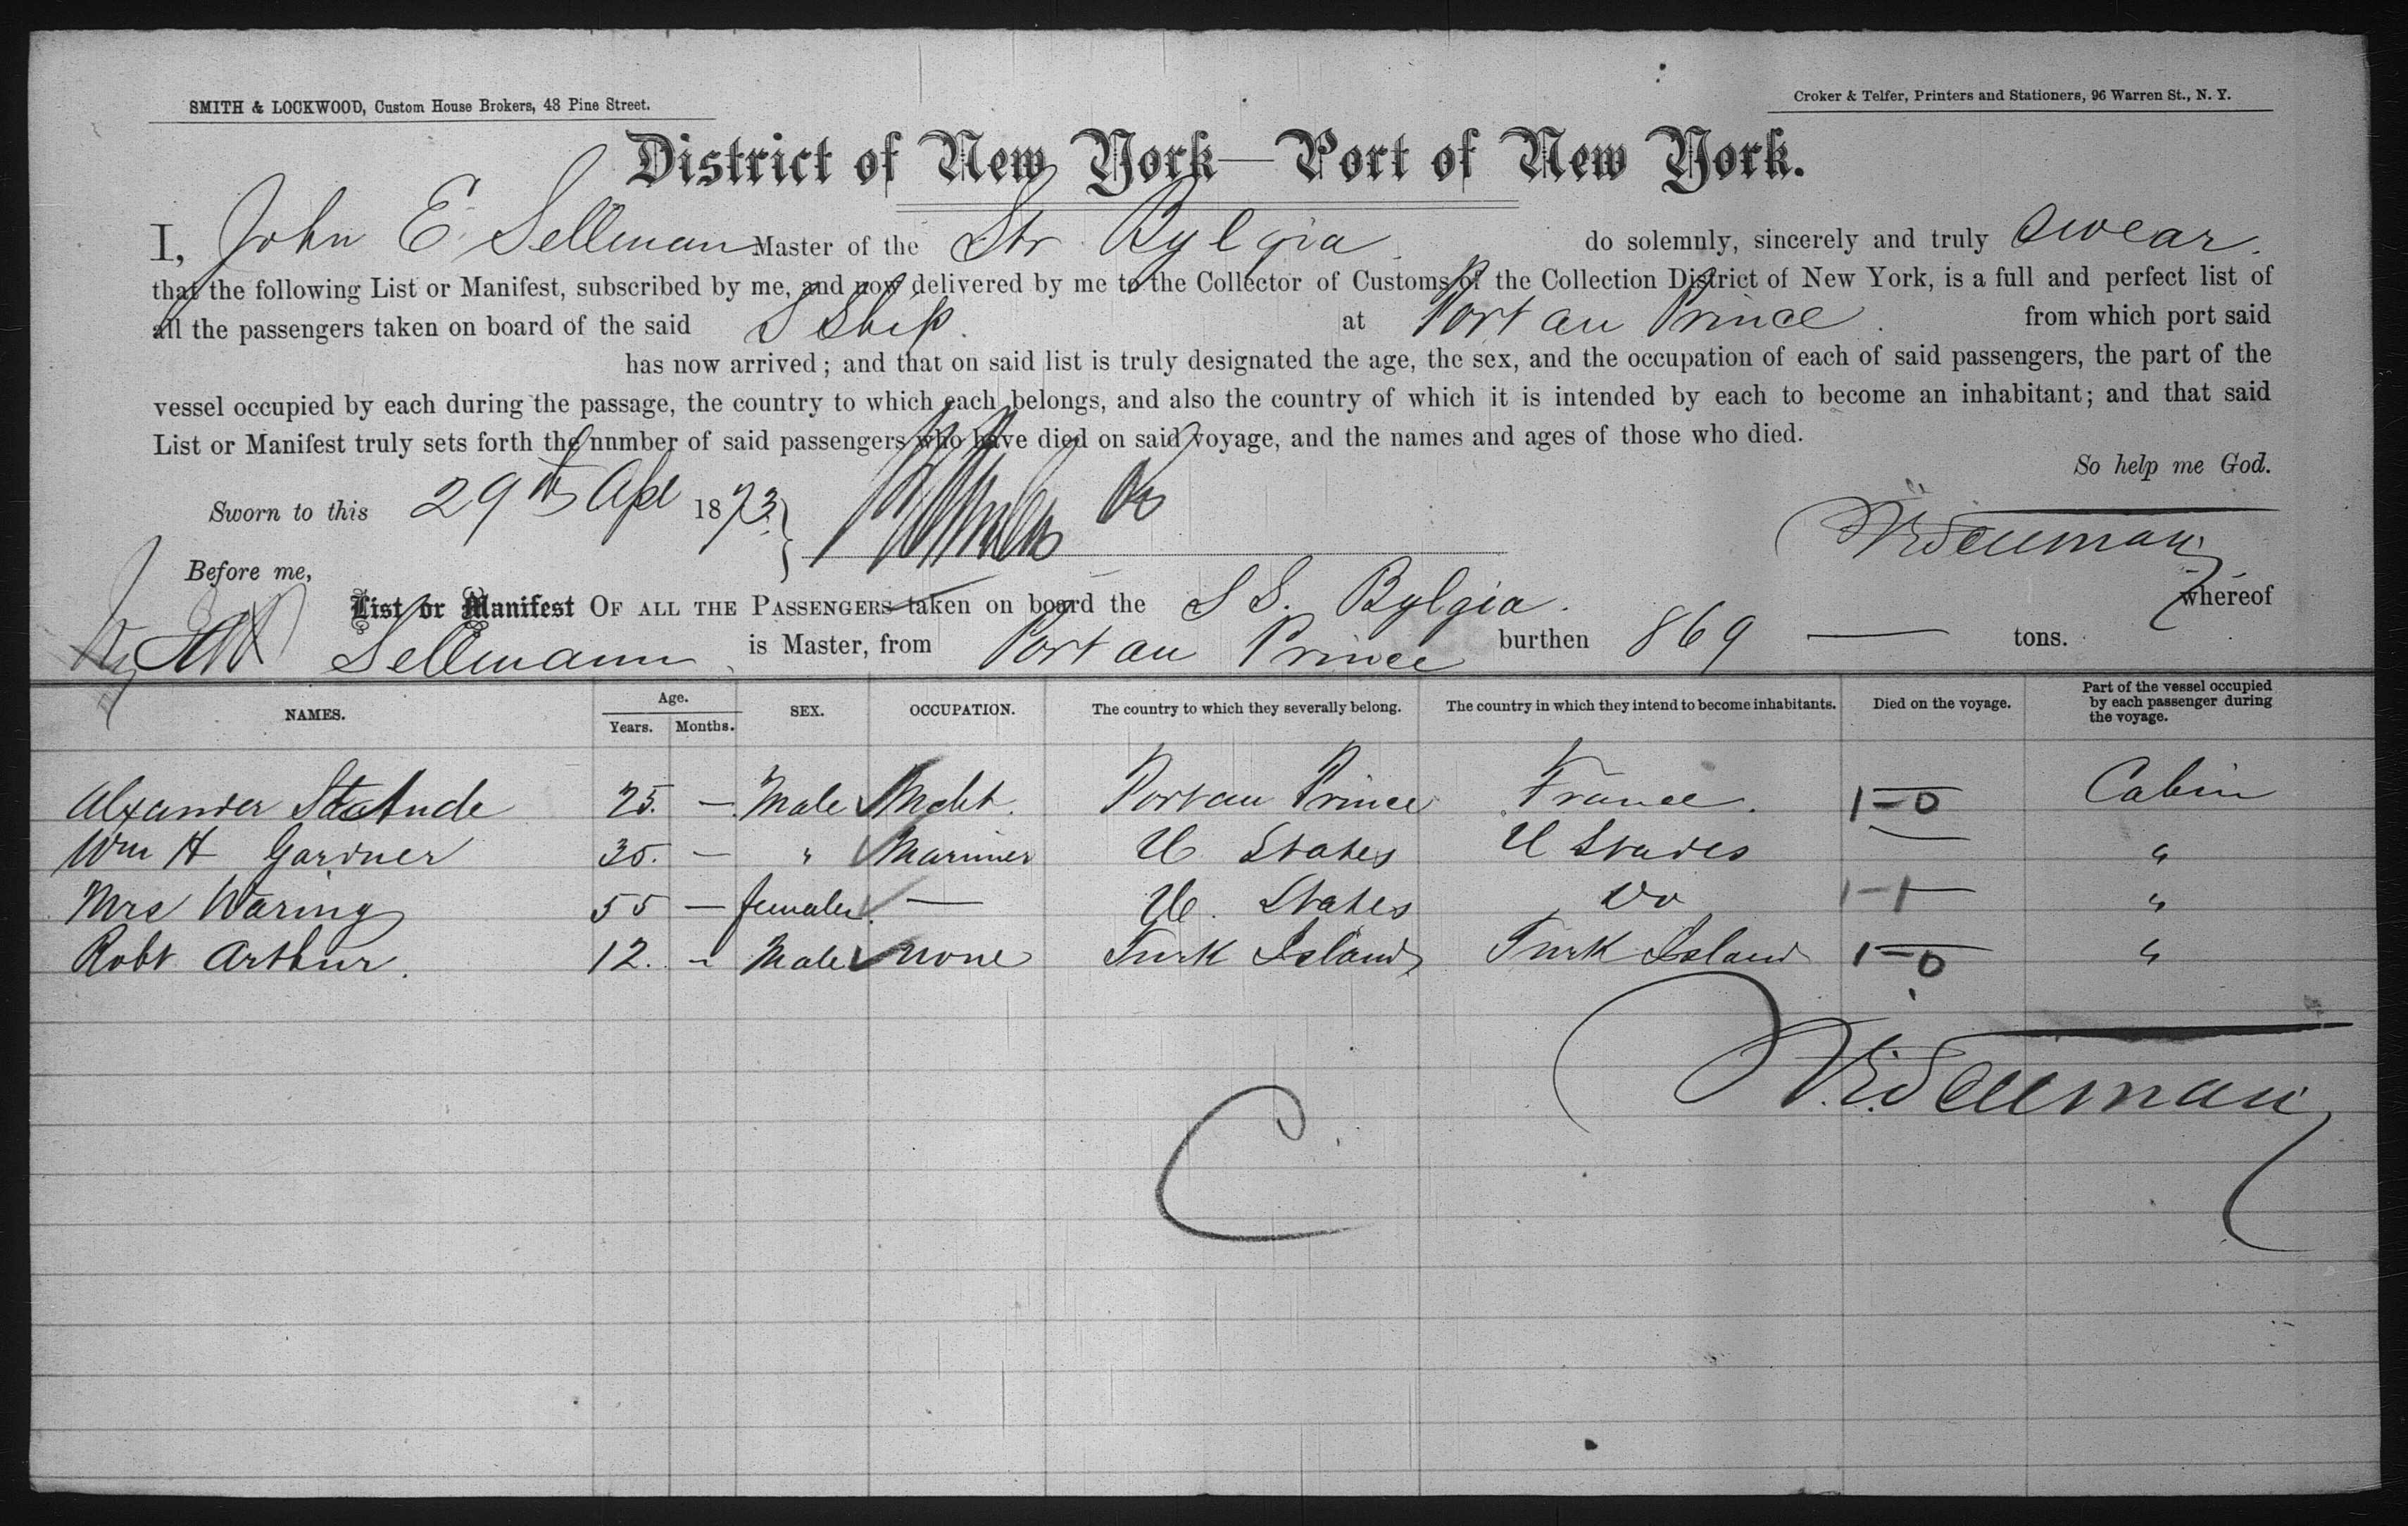 SMITH & LOCKWOOD, Custom House Brokers, 43 Pine Street.
Croker & Telfer, Printers and Stationers, 96 Warren St., N. Y.
District of New York—Port of New York.
I, John E Sellman Master of the Str Bylgia do solemnly, sincerely and truly swear
that the following List or Manifest, subscribed by me, and now delivered by me to the Collector of Customs of the Collection District of New York, is a full and perfect list of
all the passengers taken on board of the said S Ship. at Port au Prince. from which port said
has now arrived; and that on said list is truly designated the age, the sex, and the occupation of each of said passengers, the part of the
vessel occupied by each during the passage, the country to which each belongs, and also the country of which it is intended by each to become an inhabitant; and that said
List or Manifest truly sets forth the nnmber of said passengers who have died on said voyage, and the names and ages of those who died.
So help me God.
Sworn to this 29th Apl 1873.
Before me,
List or Manifest OF ALL THE PASSENGERS taken on board the S S. Bylgia. whereof
Sellmann is Master, from Port au Prince burthen 869 — tons.
NAMES. Age. Years. Months. SEX. OCCUPATION. The country to which they severally belong. The country in which they intend to become inhabitants. Died on the voyage. Part of the vessel occupied by each passenger during the voyage.
Alxander 25. — Male Mcht. Port au Prince France. 1-0 Cabin
Wm H Gardner 35. — " Mariner U States U States — "
Mrs Waring 55 — female — U. States Do 1-1 "
Robt Arthur. 12. - Male none Turk Island Turk Island 1-0 "
C